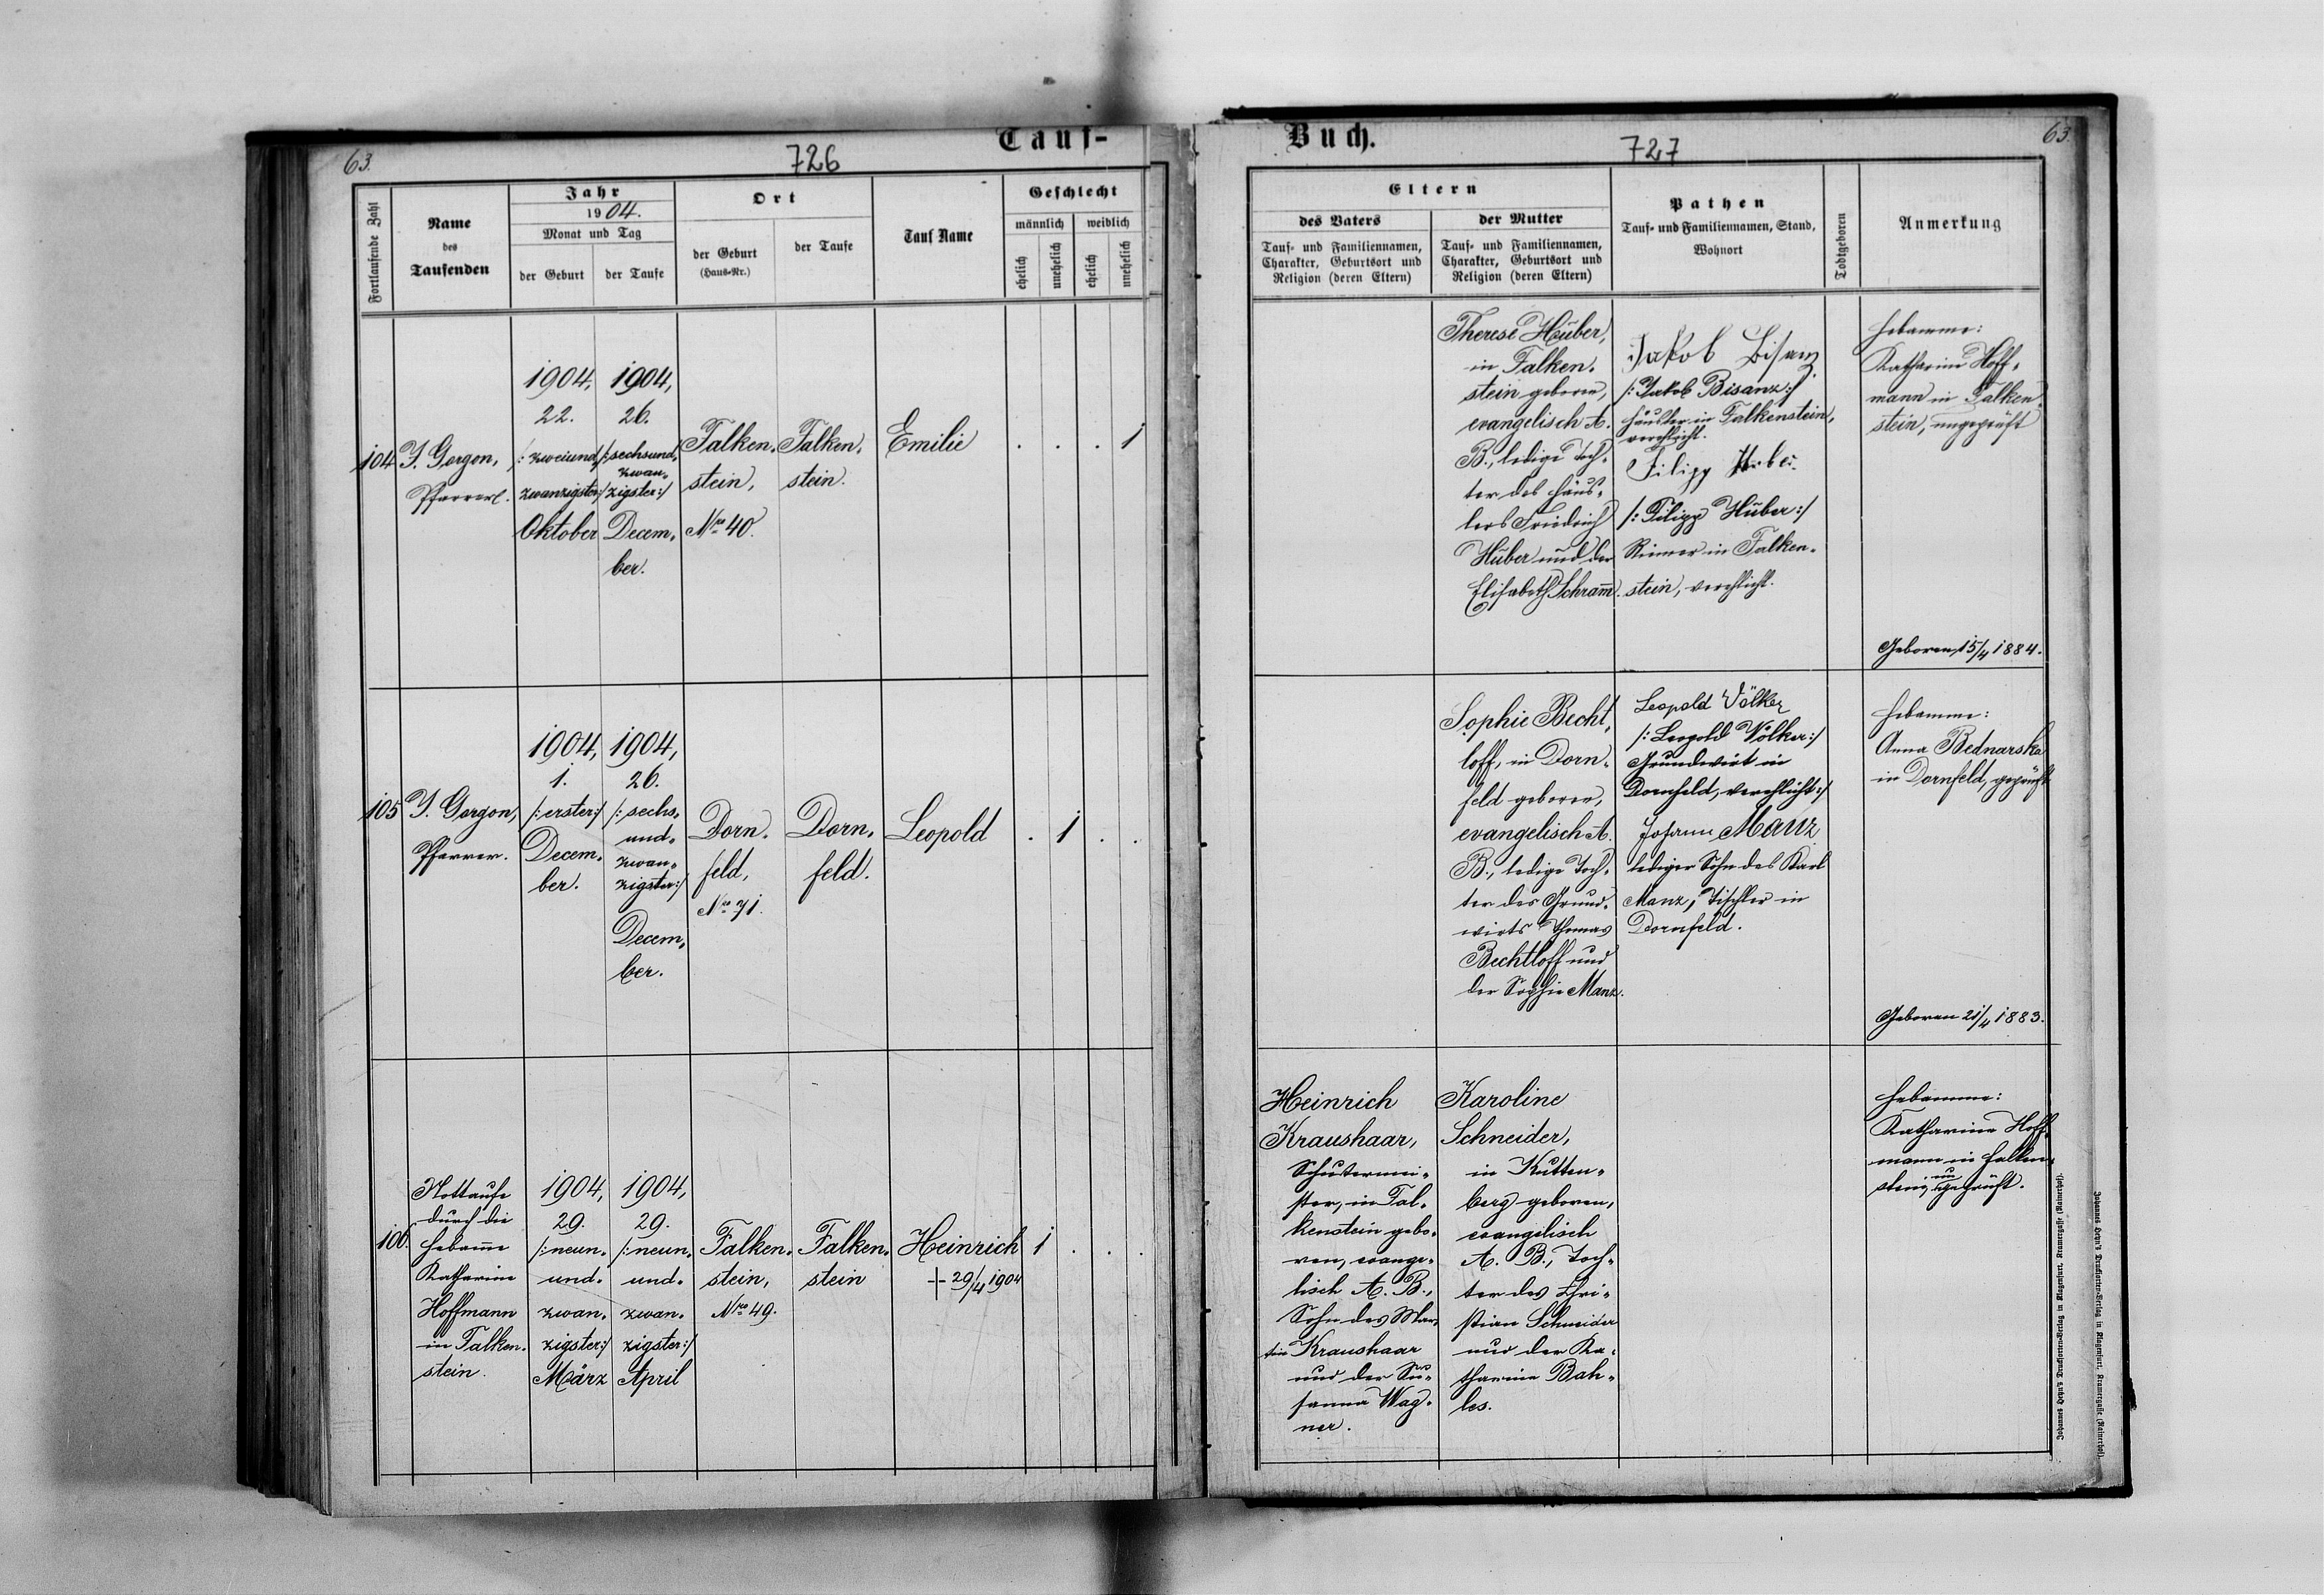 63.
726
Tauf-
Fortlaufende Zahl
Name
des
Taufenden
Jahr
1904.
Monat und Tag
der Geburt
der Taufe
Ort
der Geburt
(Haus-Nr.)
der Taufe
Tauf Name
Geschlecht
männlich
weiblich
ehelich
unehelich
ehelich
unehelich
104
J. Gorgon,
Pfarrer.
1904,
22.
/: zweiund,
zwanzigster:/
Oktober
1904,
26.
/: sechsund,
zwan-
zigster:/
Decem,
ber.
Falken,
stein,
Nro 40.
Falken,
stein.
Emilie
. . . 1
105
J. Gorgon,
Pfarrer.
1904,
1.
/: erster:/
Decem,
ber.
1904,
26.
/: sechs,
und,
zwan,
zigster:/
Decem,
ber.
Dorn,
feld,
Nro 71.
Dorn,
feld.
Leopold
. 1 . .
106.
Nottaufe
durch die
Hebamme
Katharine
Hoffmann
in Falken,
stein.
1904,
29.
/: neun,
und,
zwan,
zigster:/
März
1904,
29.
/: neun,
und,
zwan,
zigster:/
April
Falken,
stein,
Nro 49.
Falken,
stein
Heinrich
† 29/4 1904
1 . . .
Buch.
727
63
Eltern
des Vaters
Tauf- und Familiennamen,
Charakter, Geburtsort und
Religion (deren Eltern)
der Mutter
Tauf- und Familiennamen,
Charakter, Geburtsort und
Religion (deren Eltern)
Pathen
Tauf- und Familiennamen, Stand,
Wohnort
Todtgeboren
Anmerkung
Therese Huber,
in Falken,
stein geboren,
evangelisch A.
B., ledige Toch,
ter des Häus,
lers Friedrich
Huber und der
Elisabeth Schramm.
Jakob Bisanz
/: Jakob Bisanz:/
Häusler in Falkenstein,
verehlicht.
Filipp Huber
/: Filipp Huber:/
in Falken,
stein, verehlicht.
Hebamme:
Katharine Hoff,
mann in Falken,
stein, ungeprüft
Geboren 15/4 1884.
Sophie Becht,
loff, in Dorn,
feld geboren,
evangelisch A.
B., ledige Toch,
ter des Grund,
wirts Thomas
Bechtloff und
der Sophie Manz.
Leopold Völker
/: Leopold Völker:/
Grundwirt in
Dornfeld, verehlicht:/
Johann Manz
lediger Sohn des Karl
Manz, Tischler in
Dornfeld.
Hebamme:
Anna Bednarska
in Dornfeld, geprüft
Geboren 21/4 1883.
Heinrich
Kraushaar,
Schustermei,
ster, in Fal,
kenstein gebo,
ren, evange,
lisch A. B.,
Sohn des Mar,
tin Kraushaar
und der Su,
sanna Wag,
ner.
Karoline
Schneider,
in Kutten,
berg geboren,
evangelisch
A. B., Toch,
ter des Chri,
stian Schneider
und der Ka,
tharine Bah,
les.
Hebamme:
Katharine Hoff,
mann in Falken,
stein, ungeprüft.
Johannes Heyn's Drucksorten-Verlag in Klagenfurt, Kramergasse (Rainerhof).
Johannes Heyn's Drucksorten-Verlag in Klagenfurt, Kramergasse (Rainerhof).